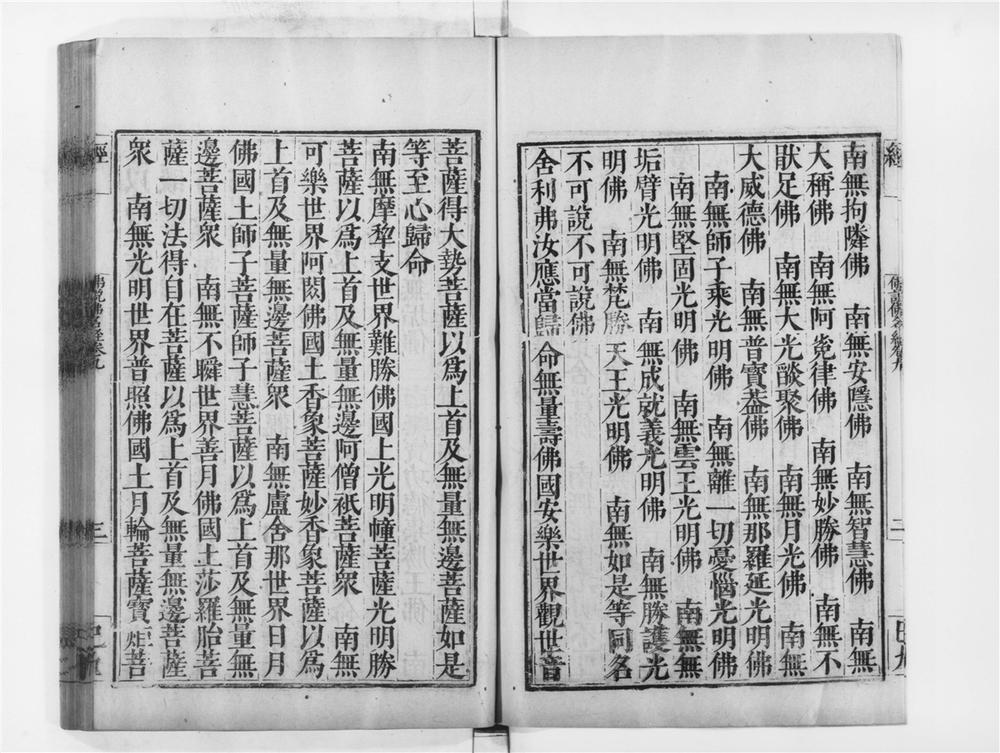 南無拘隣佛　南無安隱佛　南無智慧佛　南無
大稱佛　南無阿㝹律佛　南無妙勝佛　南無不
猒足佛　南無大光燄聚佛　南無月光佛　南無
大威德佛　南無普寶葢佛　南無那羅延光明佛
南無師子乘光明佛　南無離一切憂惱光明佛
南無堅固光明佛　南無雲王光明佛　南無無
垢臂光明佛　南無成就義光明佛　南無勝護光
明佛　南無梵勝天王光明佛　南無如是等同名
不可說不可說佛
舍利弗汝應當歸命無量壽佛國安樂世界觀世音
菩薩得大勢菩薩以爲上首及無量無邊菩薩如是
等至心歸命
南無摩犂支世界難勝佛國土光明幢菩薩光明勝
菩薩以爲上首及無量無邊阿僧祇菩薩衆　南無
可樂世界阿閦佛國土香象菩薩妙香象菩薩以爲
上首及無量無邊菩薩衆　南無盧舍那世界日月
佛國土師子菩薩師子慧菩薩以爲上首及無量無
邊菩薩衆　南無不瞬世界善月佛國土莎羅胎菩
薩一切法得自在菩薩以爲上首及無量無邊菩薩
衆　南無光明世界普照佛國土月輪菩薩寶炬菩
經
佛說佛名經卷九
三